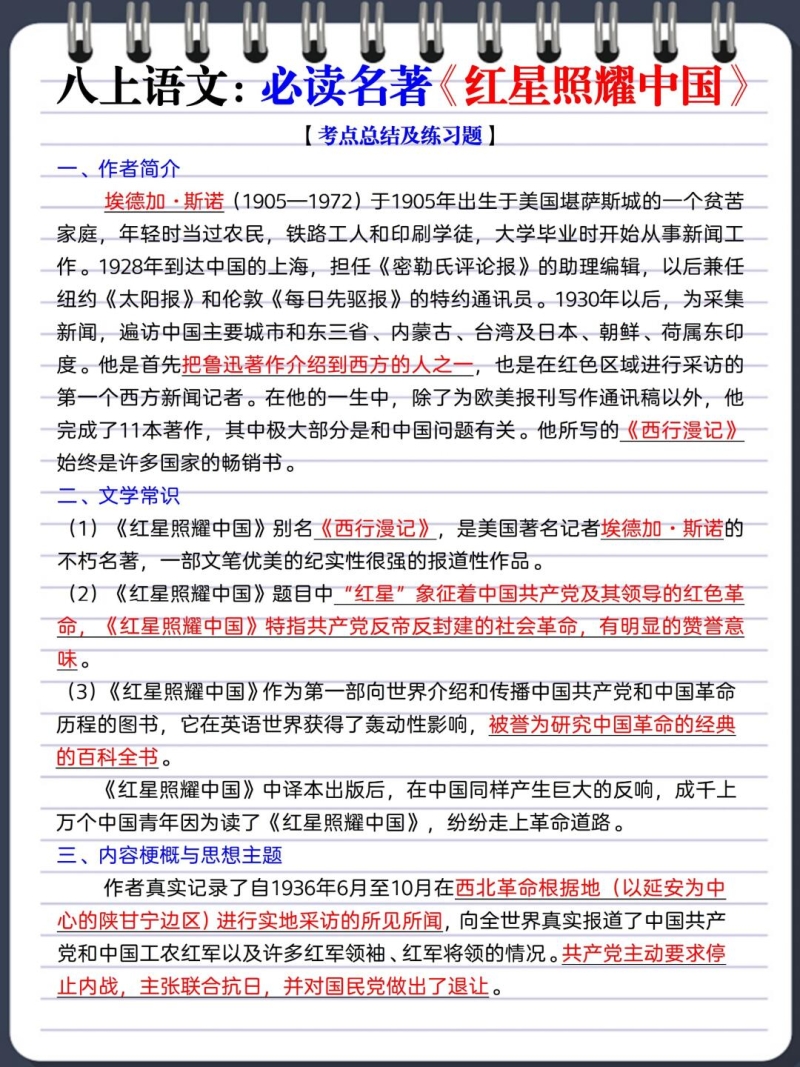 八上语文：必读名著《红星照耀中国》
【考点总结及练习题】
一、作者简介
埃德加·斯诺（1905—1972）于1905年出生于美国堪萨斯城的一个贫苦
家庭，年轻时当过农民，铁路工人和印刷学徒，大学毕业时开始从事新闻工
作。1928年到达中国的上海，担任《密勒氏评论报》的助理编辑，以后兼任
纽约《太阳报》和伦敦《每日先驱报》的特约通讯员。1930年以后，为采集
新闻，遍访中国主要城市和东三省、内蒙古、台湾及日本、朝鲜、荷属东印
度。他是首先把鲁迅著作介绍到西方的人之一，也是在红色区域进行采访的
第一个西方新闻记者。在他的一生中，除了为欧美报刊写作通讯稿以外，他
完成了11本著作，其中极大部分是和中国问题有关。他所写的《西行漫记》
始终是许多国家的畅销书。
二、文学常识
（1）《红星照耀中国》别名《西行漫记》，是美国著名记者埃德加·斯诺的
不朽名著，一部文笔优美的纪实性很强的报道性作品。
（2）《红星照耀中国》题目中“红星”象征着中国共产党及其领导的红色革
命，《红星照耀中国》特指共产党反帝反封建的社会革命，有明显的赞誉意
味。
（3）《红星照耀中国》作为第一部向世界介绍和传播中国共产党和中国革命
历程的图书，它在英语世界获得了轰动性影响，被誉为研究中国革命的经典
的百科全书。
《红星照耀中国》中译本出版后，在中国同样产生巨大的反响，成千上
万个中国青年因为读了《红星照耀中国》，纷纷走上革命道路。
三、内容梗概与思想主题
作者真实记录了自1936年6月至10月在西北革命根据地（以延安为中
心的陕甘宁边区）进行实地采访的所见所闻，向全世界真实报道了中国共产
党和中国工农红军以及许多红军领袖、红军将领的情况。共产党主动要求停
止内战，主张联合抗日，并对国民党做出了退让。